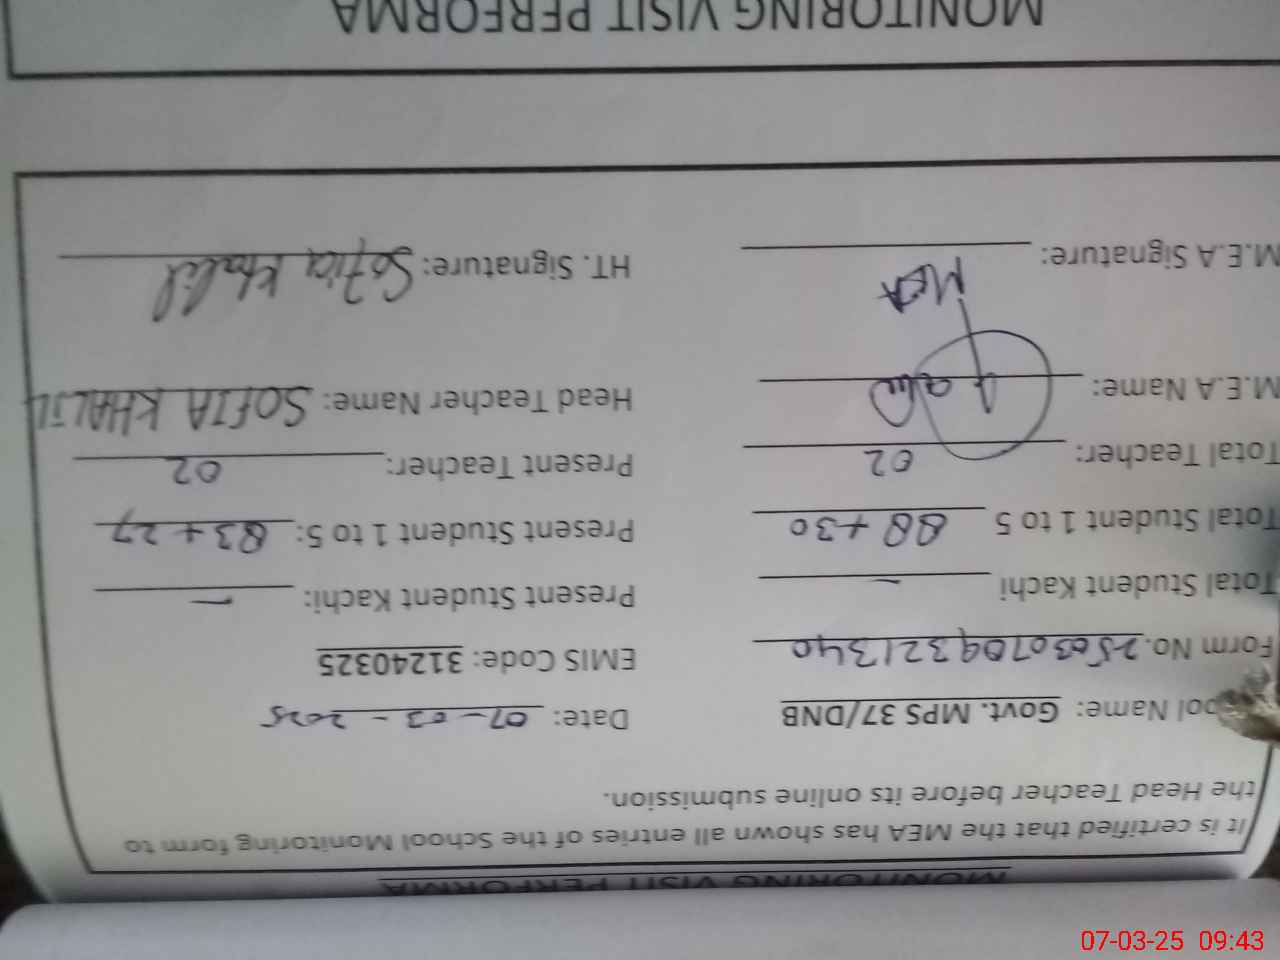 MONITORING VISIT PERFORMA
It is certified that the MEA has shown all entries of the School Monitoring form to
the Head Teacher before its online submission.
ool Name: Govt. MPS 37/DNB Date: 07-03-2025
Form No. 25030709321340 EMIS Code: 31240325
Total Student Kachi — Present Student Kachi: —
Total Student 1 to 5 88+30 Present Student 1 to 5: 83+27
Total Teacher: 02 Present Teacher: 02
M.E.A Name: Head Teacher Name: SOFIA KHALIL
M.E.A Signature: MEA HT. Signature: Sofia Khalil
MONITORING VISIT PERFORMA
07-03-25 09:43